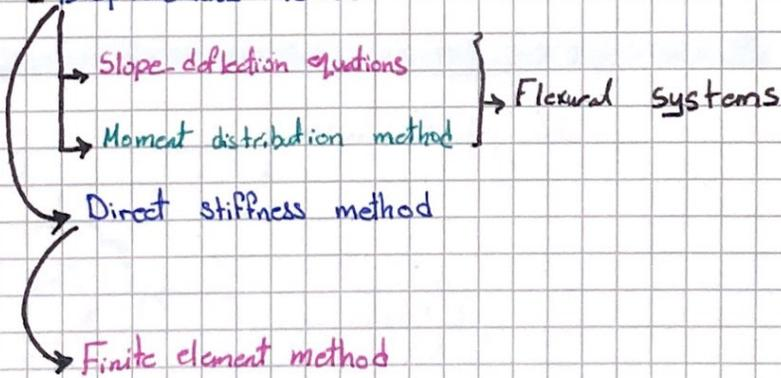 Slope-deflection equations
Moment distribution method
Flexural systems
Direct stiffness method
Finite element method